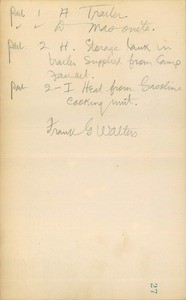 Part 1 A Trailer.
" " D Mao-onite.
Part 2 H. Storage tank in
trailer supplied from Camp
Faucet.
Part 2-I Heat from Gasoline
Cooking unit.
Frank G Walters
27